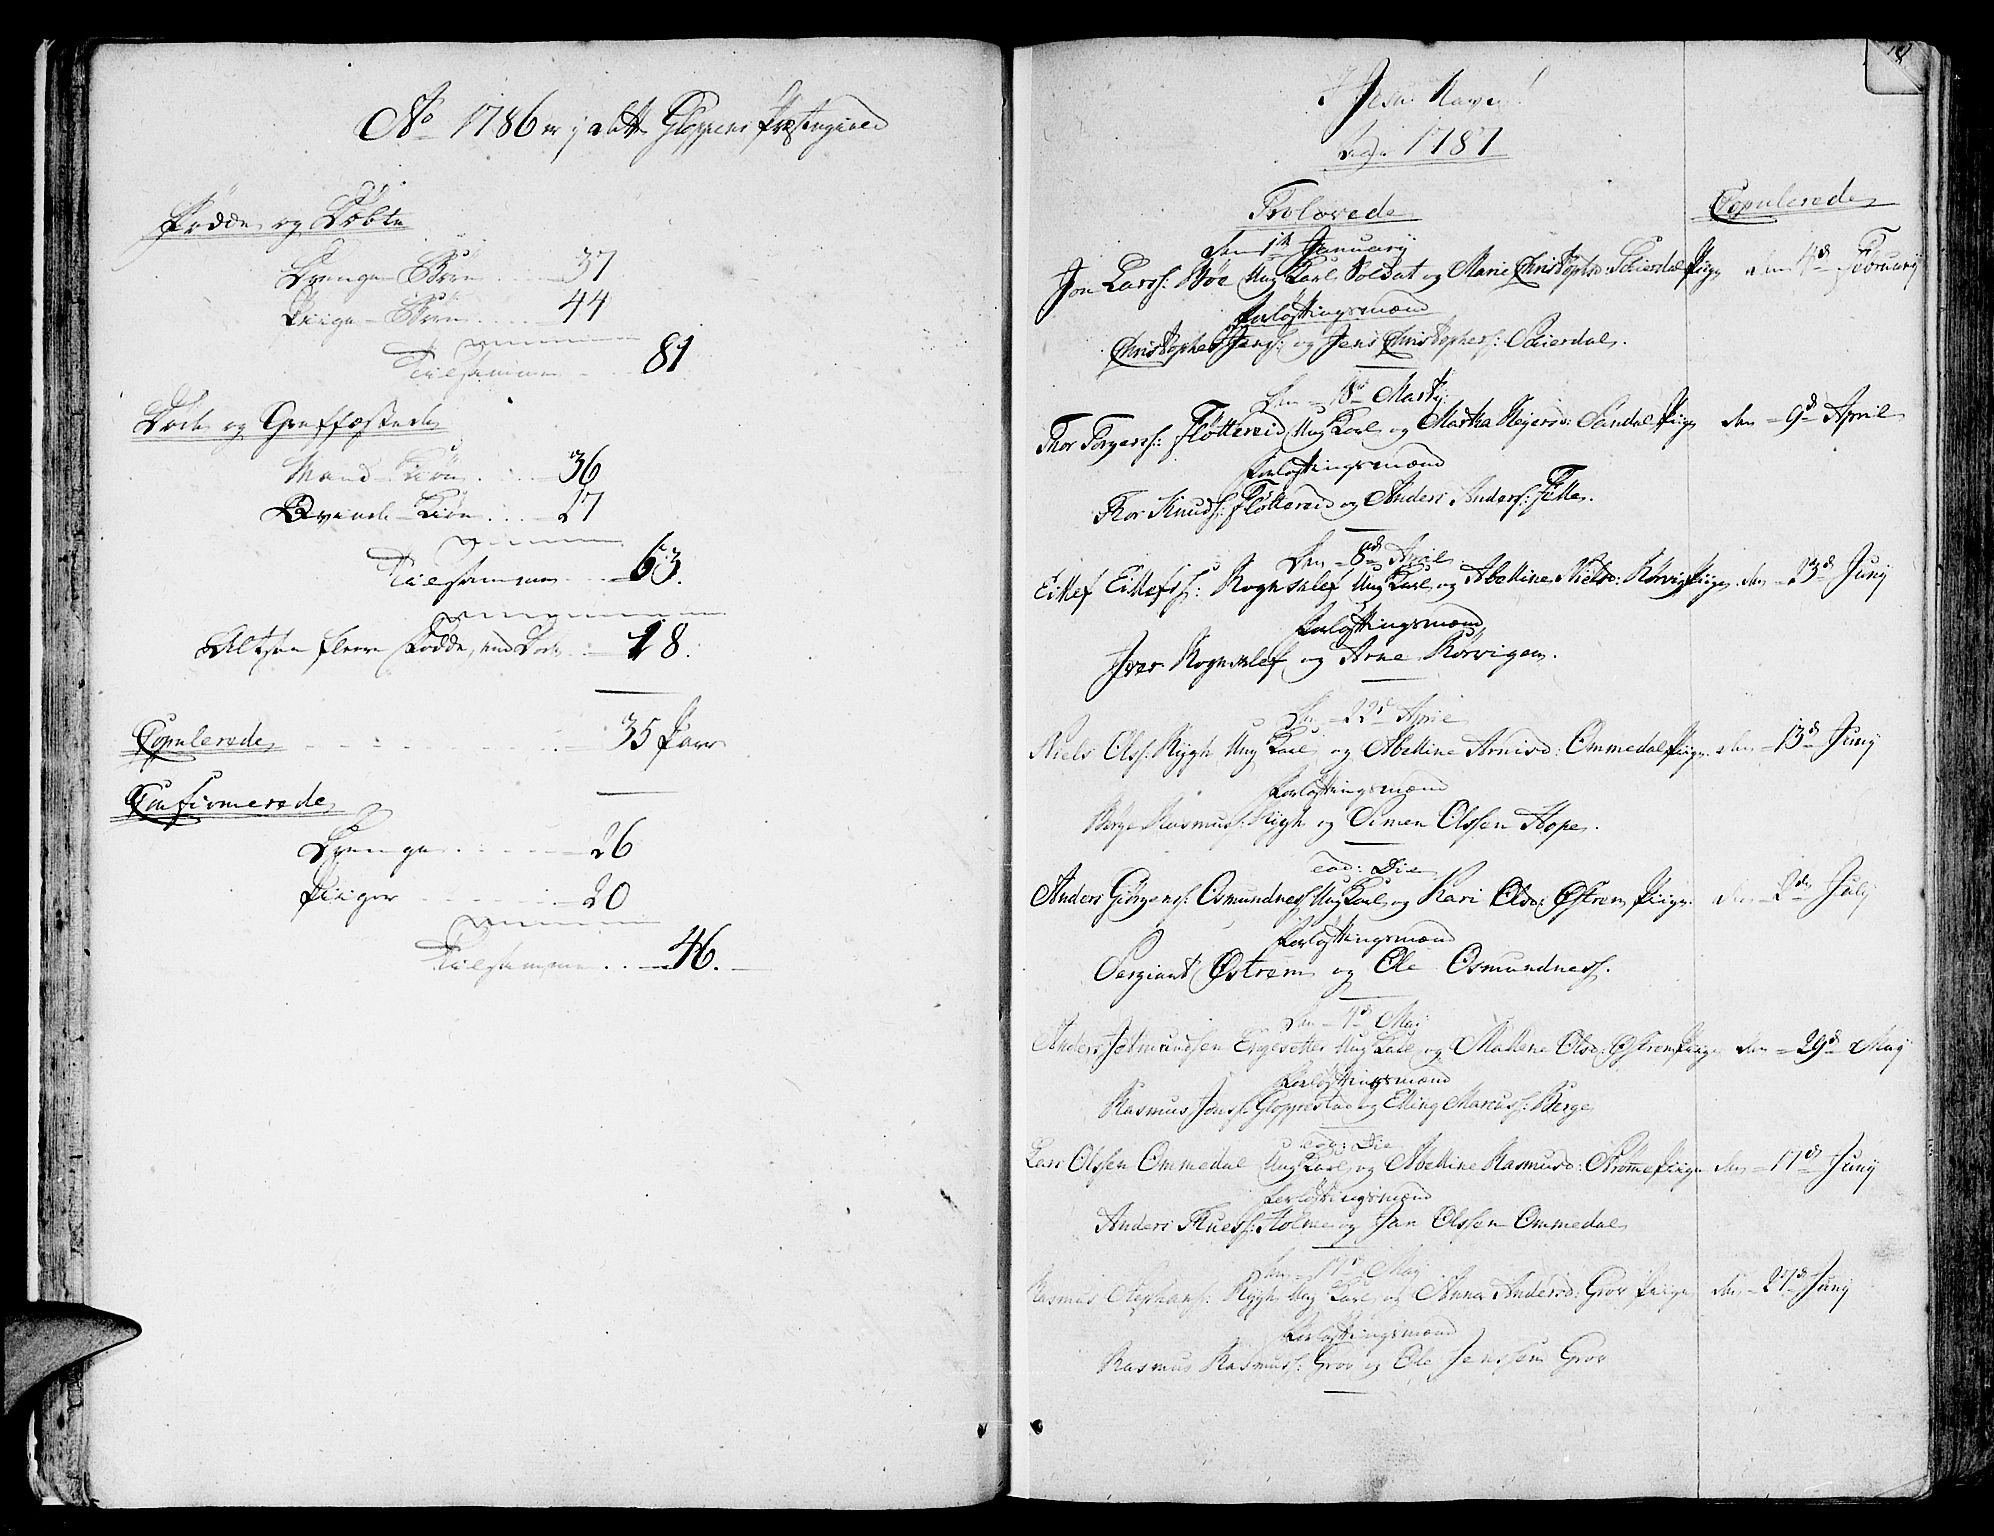 Ao 1786 er i alt Gloppens Præstegield
Fødde og Døbte
Drenge-Børn 37
Piige-Børn 44
Tilsammen 81
Døde og Graffæstede
Mand-Kiøn 36
Qvinde-Kiøn 27
Tilsammen 63.
Altsaa fleere Fødde, end Døde 18.
Copulerede 35 Par
Confirmerede
Drenge 26
Piiger 20
Tilsammen 46.
I Jesu Navn!
1787
Trolovede
Copulerede
Den 1te January
Jon Larss: Bøe Ung Karl Soldat og Marie Christophsd: Skierdal Piige den 4de February
Forløftningsmænd
Christopher Jenss: og Jens Christophers: Skierdal.
Den 18de Marty:
Thor Torgerss: Fløttereid Ung Karl og Martha Reiersd: Sandal Piige den 9de April
Forløftningsmænd
Thor Knuds: Fløttereid og Anders Anders: Felle.
Den 8de April
Ellef Ellefss: Rognsklef Ung Karl og Abeline Nielsd: Rørvig Piige den 23de Juny
Forløftningsmænd
Iver Rognsklef og Arne Rørvigen.
Den 22de April
Niels Olss: Rygh Ung Karl og Abeline Arnisd: Ommedal Piige den 13de Juny
Forløftningsmænd
Børge Rasmus: Rygh og Simen Olssen Hope.
eod: Die
Anders Giørgens: Osmundnes Ung Karl og Kari Olsd: Østrem Piige den 2den July
Forløftningsmænd
Sergiant Østrem og Ole Osmundnes.
Den 4de May
Anders Jetmundsen Engesetter Ung Karl og Malene Olsd: Østrem Piige den 29de May
Forløftningsmænd
Rasmus Jonss: Gloppestad og Elling Marcuss: Berge
eod: Die
Lars Olssen Ommedal Ung Karl og Abeline Rasmusd: Strømme Piige den 17de Juny
Forløftningsmænd
Anders Thuess: Holme og Jan Olssen Ommedal
den 17de May
Rasmus Stephans: Rygh Ung Karl og Anna Andersd: Grov Piige den 27de Juny
Forløftningsmænd
Rasmus Rasmuss: Grov og Ole Jenssen Grov